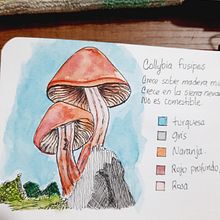 Collybia fusipes
Crece sobre madera
Crece en la sierra
No es comestible.
turquesa
gris
Naranja
Rojo profundo
Rosa